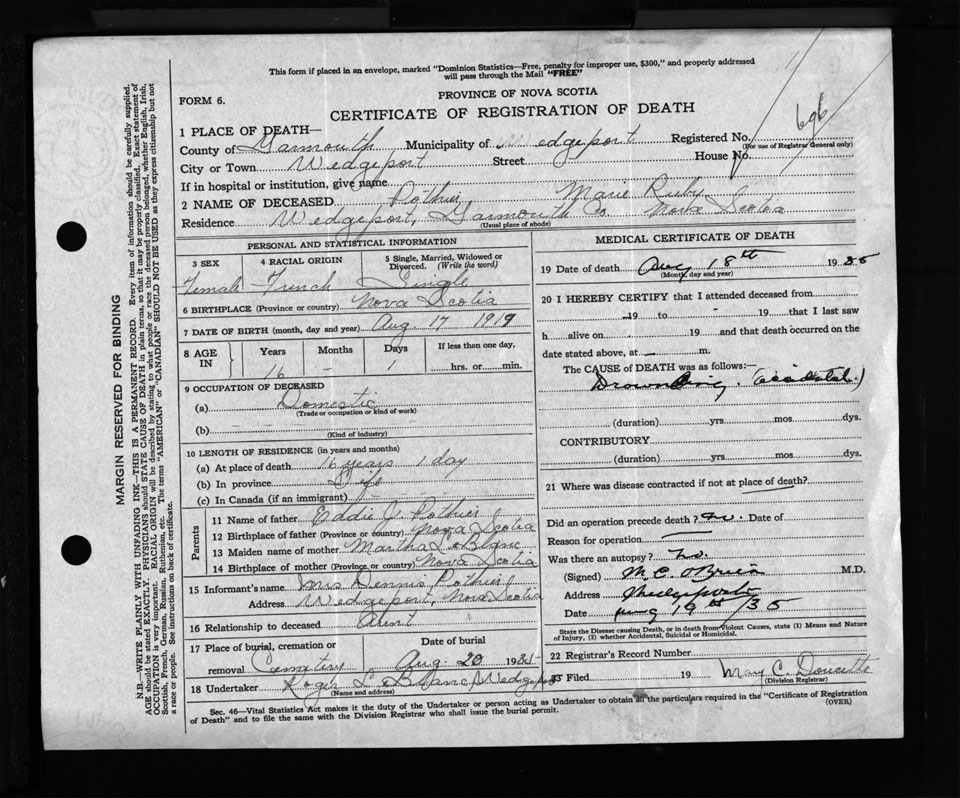 This form if placed in an envelope, marked "Dominion Statistics—Free, penalty for improper use, $300," and properly addressed
will pass through the Mail "FREE"
PROVINCE OF NOVA SCOTIA
FORM 6.
CERTIFICATE OF REGISTRATION OF DEATH
696
1 PLACE OF DEATH—
County of Yarmouth Municipality of Wedgeport Registered No.
(For use of Registrar General only)
City or Town Wedgeport Street House No.
If in hospital or institution, give name
2 NAME OF DECEASED Pothier Marie Ruby
Residence Wedgeport, Yarmouth Co Nova Scotia
(Usual place of abode)
PERSONAL AND STATISTICAL INFORMATION
3 SEX 4 RACIAL ORIGIN 5 Single, Married, Widowed or Divorced. (Write the word)
Female French Single
6 BIRTHPLACE (Province or country) Nova Scotia
7 DATE OF BIRTH (month, day and year) Aug. 17 1919
8 AGE IN Years Months Days If less than one day,
16 – 1 hrs. or min.
9 OCCUPATION OF DECEASED
(a) Domestic
(Trade or occupation or kind of work)
(b)
(Kind of industry)
10 LENGTH OF RESIDENCE (in years and months)
(a) At place of death 16 years 1 day
(b) In province Life
(c) In Canada (if an immigrant)
Parents
11 Name of father Eddie J. Pothier
12 Birthplace of father (Province or country) Nova Scotia
13 Maiden name of mother Martha LeBlanc
14 Birthplace of mother (Province or country) Nova Scotia
15 Informant's name Mrs Dennis Pothier
Address Wedgeport, Nova Scotia
16 Relationship to deceased Aunt
17 Place of burial, cremation or removal Cemetery Date of burial Aug. 20 1935
18 Undertaker Roger LeBlanc, Wedgeport
(Name and address)
MEDICAL CERTIFICATE OF DEATH
19 Date of death Aug 18th 1935
(Month, day and year)
20 I HEREBY CERTIFY that I attended deceased from
19 to 19 that I last saw
h alive on 19 and that death occurred on the
date stated above, at — m.
The CAUSE of DEATH was as follows:—
Drowning. (accidental.)
(duration) yrs. mos. dys.
CONTRIBUTORY
(duration) yrs. mos. dys.
21 Where was disease contracted if not at place of death?
Did an operation precede death? no. Date of
Reason for operation
Was there an autopsy? no.
(Signed) M. C. O'Brien M.D.
Address Wedgeport
Date Aug 19th/35
State the Disease causing Death, or in death from Violent Causes, state (1) Means and Nature
of Injury, (2) whether Accidental, Suicidal or Homicidal.
22 Registrar's Record Number
Filed 19 May C. Doucette
(Division Registrar)
Sec. 46—Vital Statistics Act makes it the duty of the Undertaker or person acting as Undertaker to obtain all the particulars required in the "Certificate of Registration
of Death" and to file the same with the Division Registrar who shall issue the burial permit.
(OVER)
MARGIN RESERVED FOR BINDING
N.B.—WRITE PLAINLY WITH UNFADING INK—THIS IS A PERMANENT RECORD. Every item of information should be carefully supplied.
AGE should be stated EXACTLY. PHYSICIANS should STATE CAUSE OF DEATH in plain terms, so that it may be properly classified. Exact statement of
OCCUPATION is very important. RACIAL ORIGIN will be described by stating to what people or race the deceased person belonged, whether English, Irish,
Scottish, French, German, Russian, Ruthenian, etc. The terms "AMERICAN" or "CANADIAN" SHOULD NOT BE USED as they express citizenship but not
a race or people. See instructions on back of certificate.